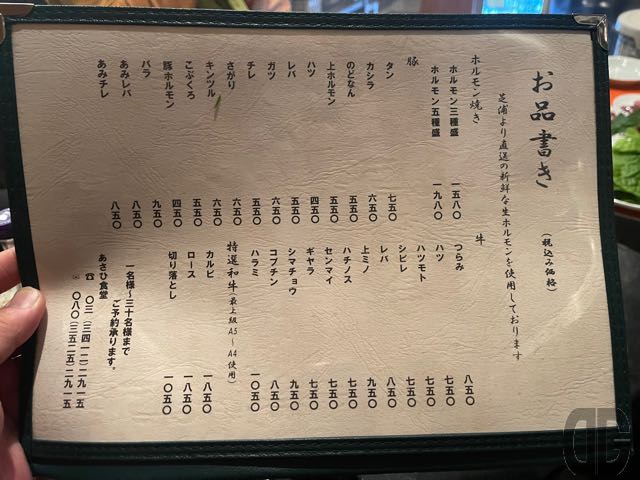 お品書き (税込み価格)
芝浦より直送の新鮮な生ホルモンを使用しております
ホルモン焼き
ホルモン三種盛 一五八〇
ホルモン五種盛 一九八〇
豚
タン 七五〇
カシラ 六五〇
のどなん 五五〇
上ホルモン 五五〇
ハツ 四五〇
レバ 五五〇
ガツ 六五〇
チレ 五五〇
さがり 六五〇
キンツル 六五〇
こぶくろ 五五〇
豚ホルモン 四五〇
バラ 九五〇
あみレバ 八五〇
あみチレ 八五〇
牛
つらみ 八五〇
ハツ 七五〇
ハツモト 七五〇
シビレ 七五〇
レバ 八五〇
上ミノ 九五〇
ハチノス 七五〇
センマイ 七五〇
ギヤラ 七五〇
シマチョウ 九五〇
コプチン 八五〇
ハラミ 一〇五〇
特選和牛(最上級A5〜A4使用)
カルビ 一八五〇
ロース 一八五〇
切り落とし 一〇五〇
一名様〜三十名様まで
ご予約承ります。
あさひ食堂
☎ 〇三(三四一二)二九一五
〇八〇(三五二五)二九一五